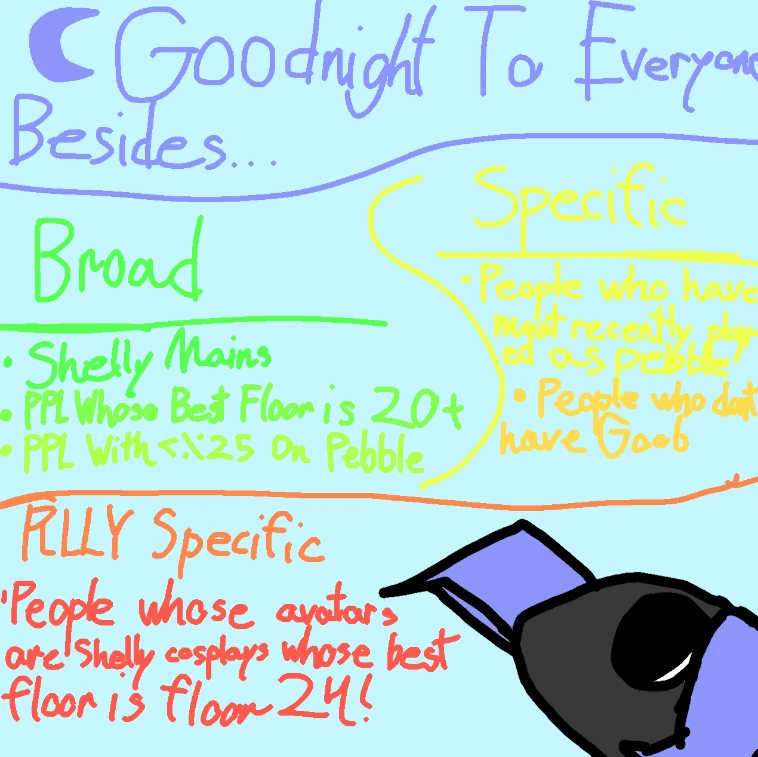 Goodnight To Everyone
Besides...
Broad
• Shelly Mains
• PPL Whose Best Floor is 20+
• PPL With <%25 On Pebble
Specific
• People who have
most recently play-
ed as pebble
• People who dont
have Goob
RLLY Specific
• People whose avatars
are Shelly cosplays whose best
floor is floor 24!